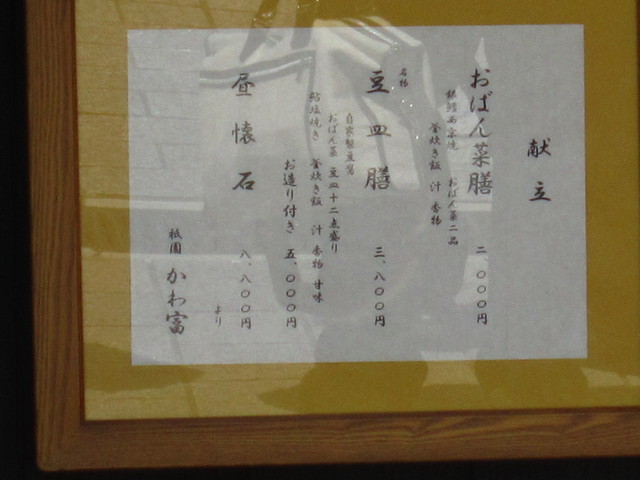 献立
おばん菜膳 二、〇〇〇円
銀鱈西京焼 おばん菜二品
釜炊き飯 汁 香物
名物
豆皿膳 三、八〇〇円
自家製豆腐
おばん菜 豆皿十二点盛り
鮎塩焼き 釜炊き飯 汁 香物 甘味
お造り付き 五、〇〇〇円
昼懐石 八、八〇〇円
より
祇園 かわ富